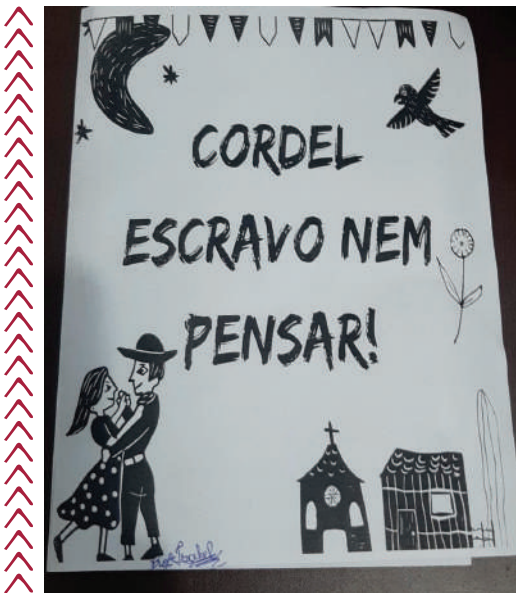 CORDEL
ESCRAVO NEM
PENSAR!